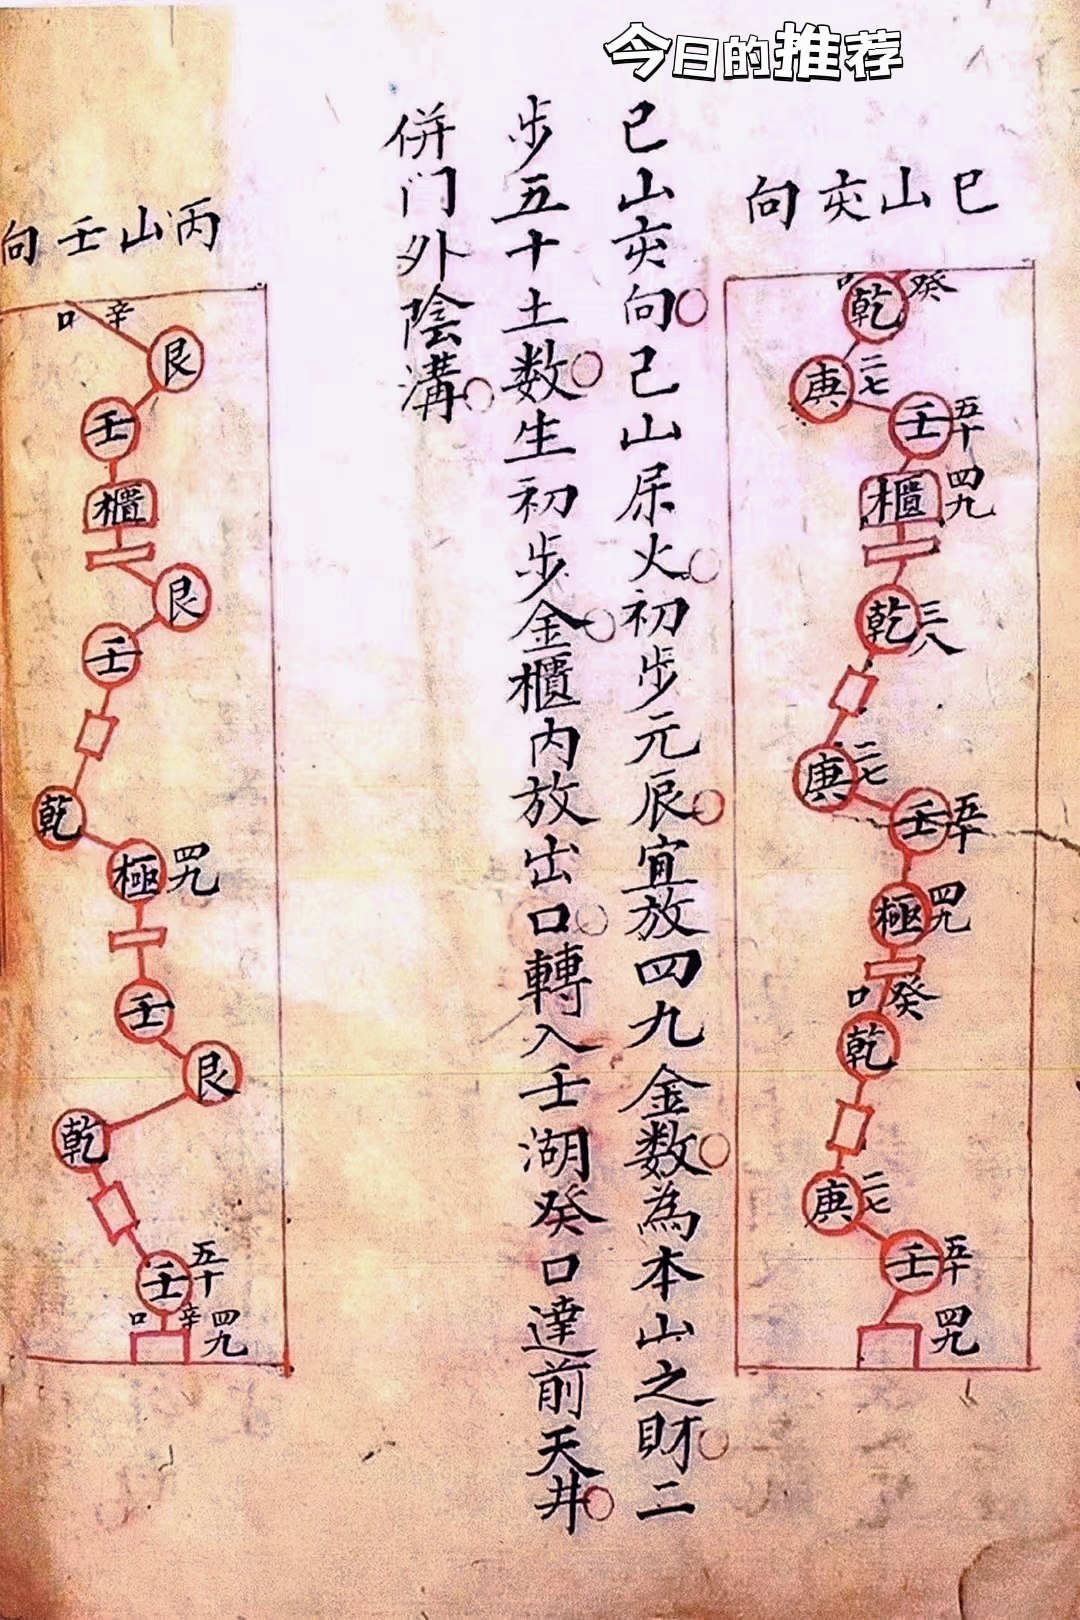 今日的推荐
巳山亥向
癸
口
乾
庚
二七
壬
五十
櫃
四九
乾
三八
庚
二七
壬
五十
極
四九
口
癸
乾
庚
二七
壬
五十
四九
巳山亥向己山屌火初步元辰宜放四九金数為本山之財二
步五十土数生初步金櫃内放出口轉入壬湖癸口達前天井
併门外陰溝
丙山壬向
口
辛
艮
壬
櫃
艮
壬
乾
極
四九
壬
艮
乾
壬
五十
口
辛
四九